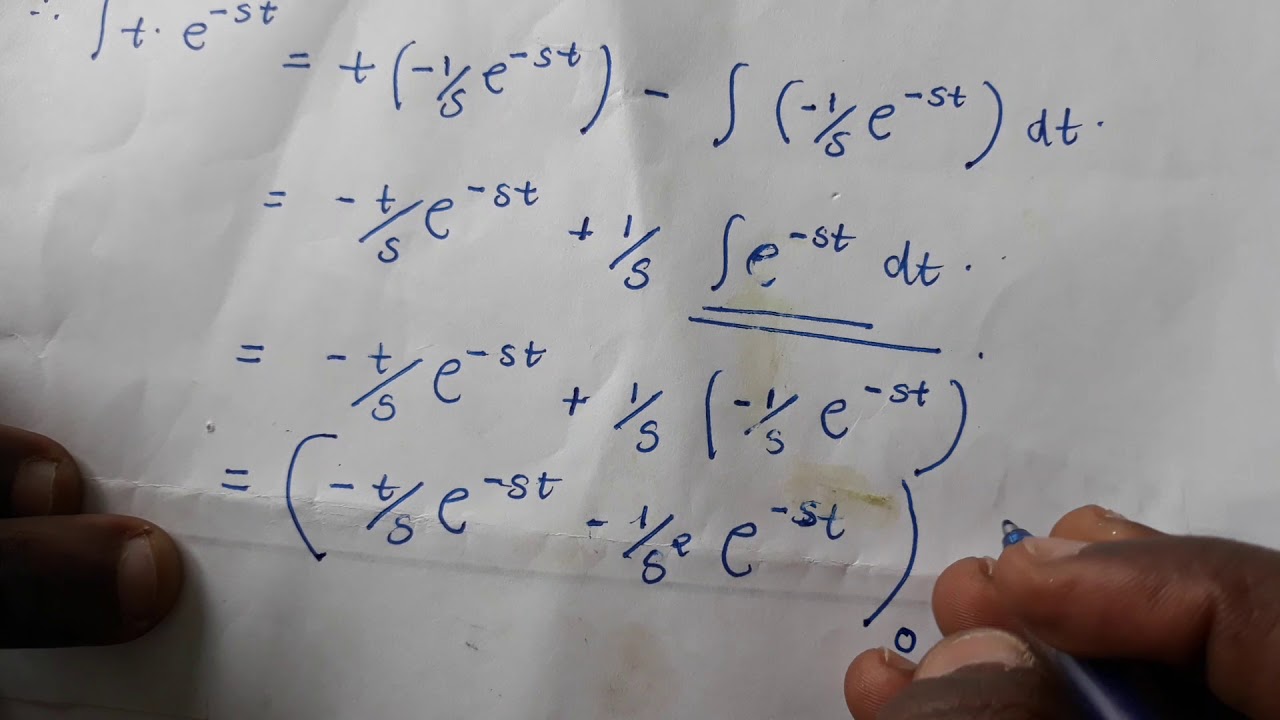 ∴ ∫ t. e^{-st} = t (-1/s e^{-st}) - ∫ (-1/s e^{-st}) dt.
= -t/s e^{-st} + 1/s ∫ e^{-st} dt.
= -t/s e^{-st} + 1/s (-1/s e^{-st})
= (-t/s e^{-st} - 1/s² e^{-st})_0